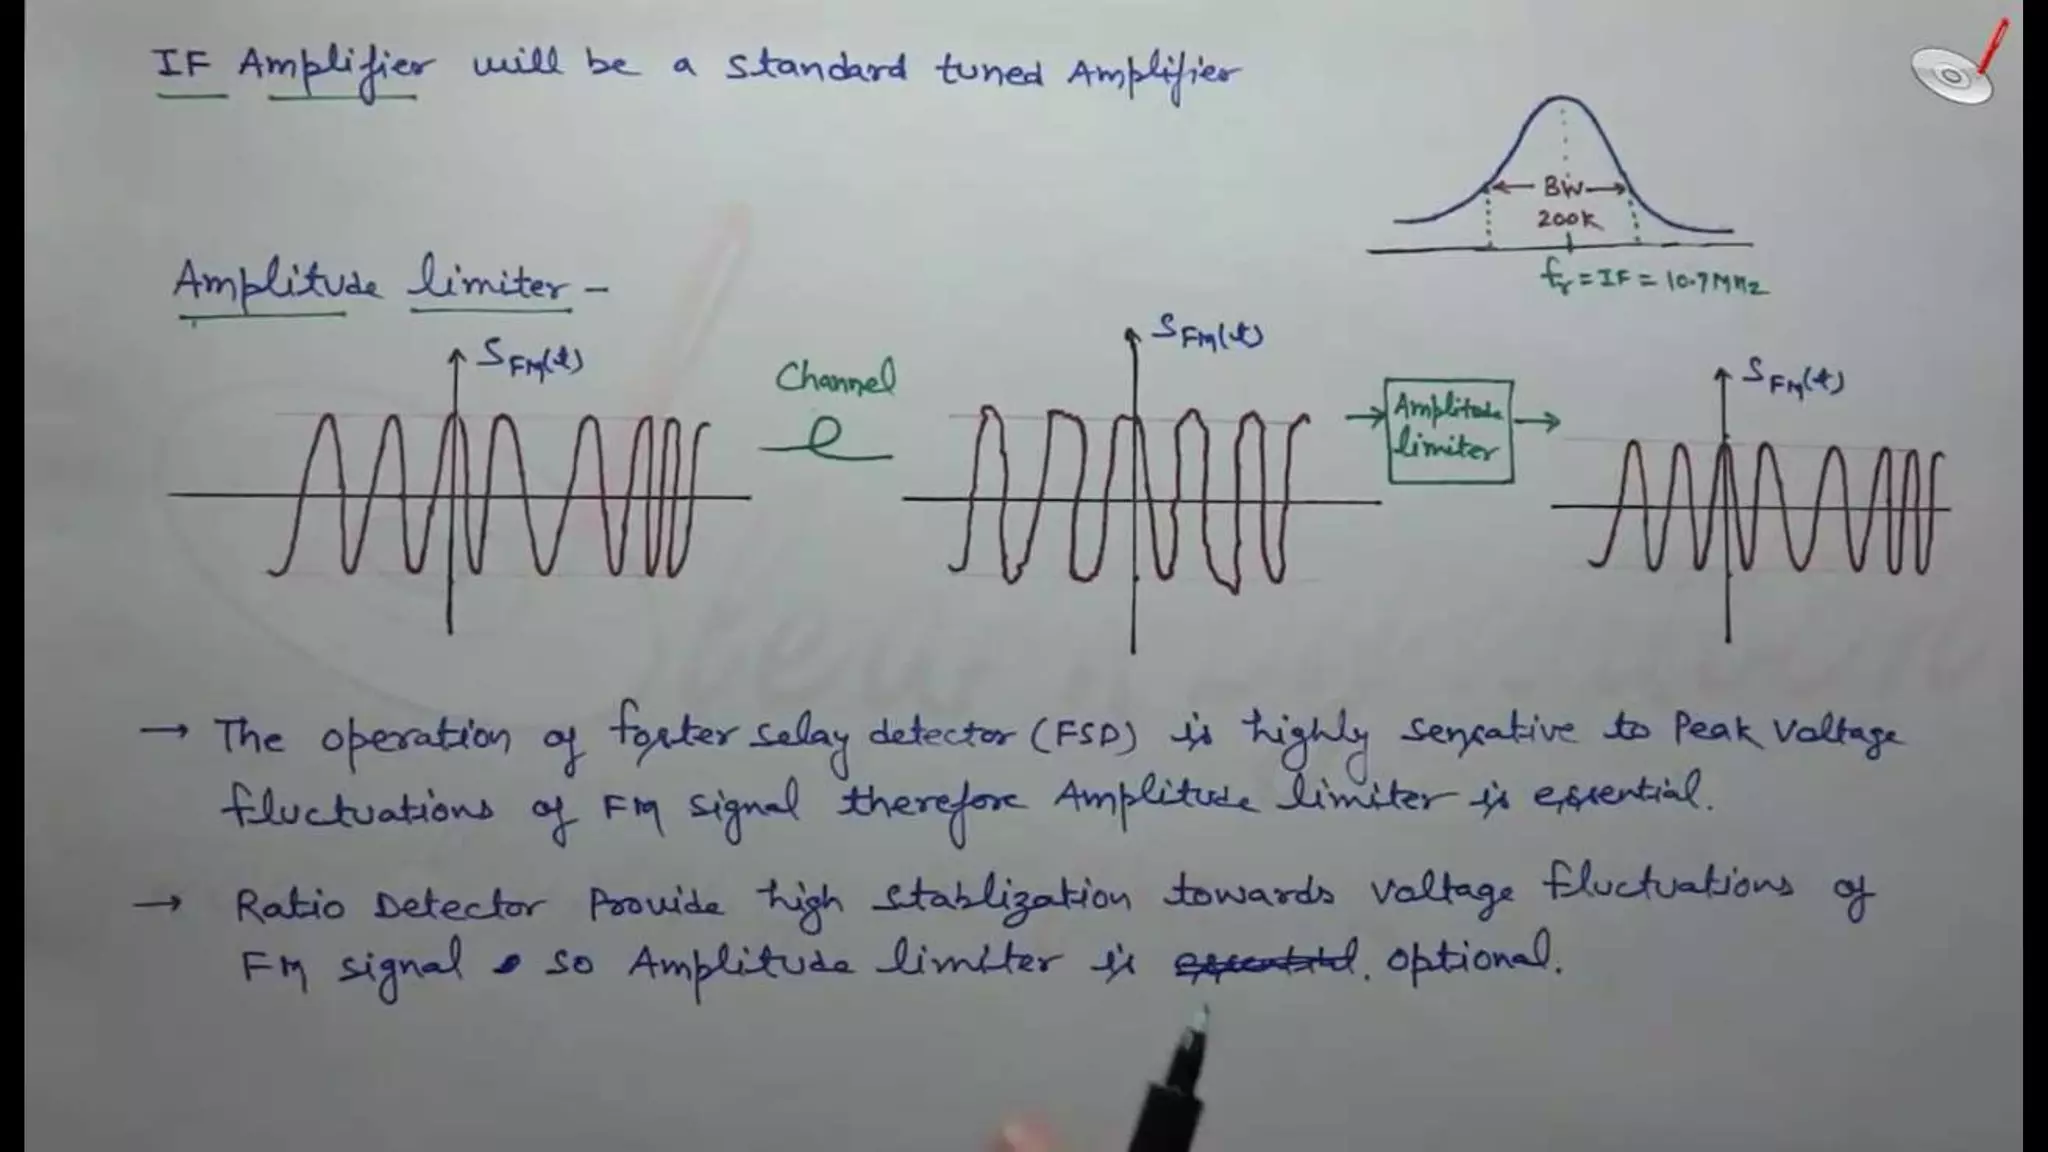 IF Amplifier will be a standard tuned Amplifier
BW
200K
fr = IF = 10.7 MHz
Amplitude limiter -
SFM(t)
Channel
SFM(t)
Amplitude
limiter
SFM(t)
→ The operation of foster selay detector (FSD) is highly sensative to Peak Voltage
fluctuations of FM signal therefore Amplitude limiter is essential.
→ Ratio Detector Provide high stablization towards voltage fluctuations of
FM signal so Amplitude limiter is essential. optional.